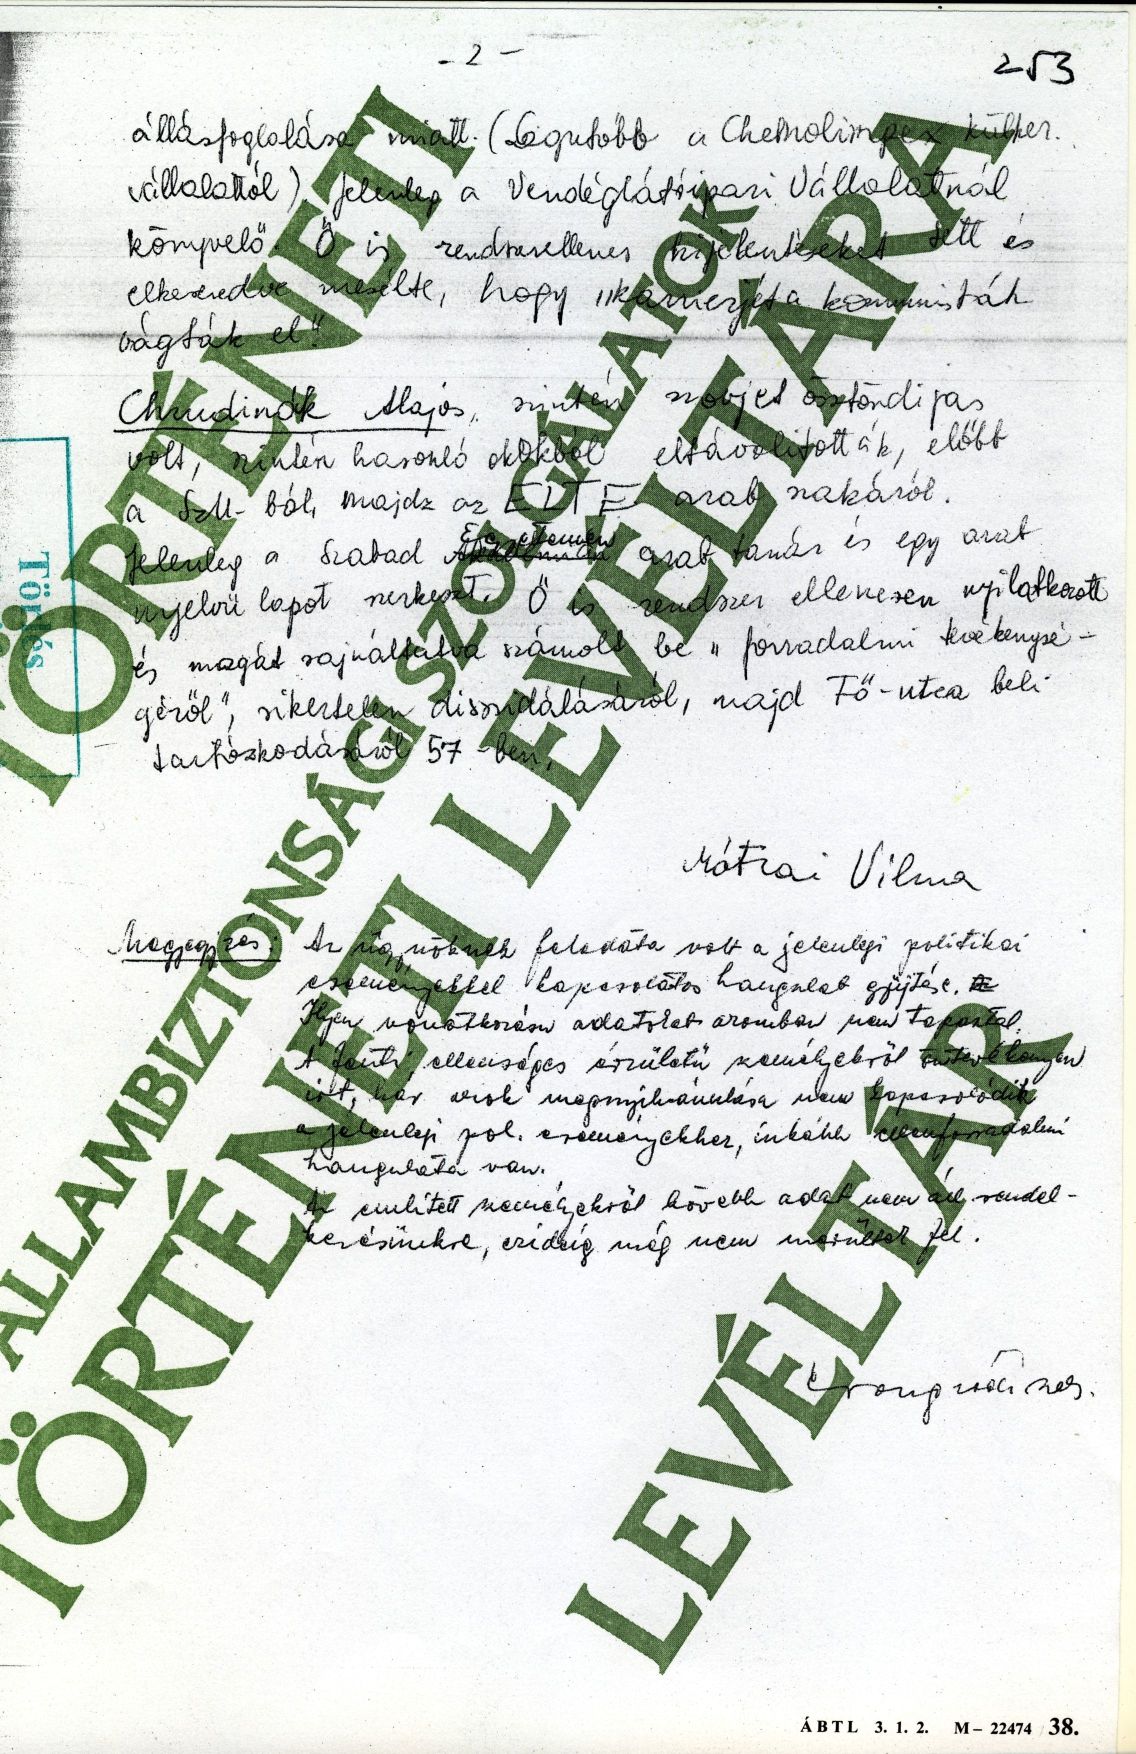 - 2 -
253
állásfoglalása miatt. (Legutóbb a Chemolimpex külker.
vállalattól). Jelenleg a Vendéglátóipari Vállalatnál
könyvelő. Ő is rendszerellenes kijelentéseket tett és
elkeseredve mesélte, hogy "karrierjét a kommunisták
vágták el"
Chrudinák Alajos, szintén szovjet ösztöndijas
volt, szintén hasonló okokból eltávolították, előbb
a SzU-ból, majd az ELTE arab szakáról.
Jelenleg a Szabad Egyetemen arab tanár és egy arab
nyelvü lapot szerkeszt. Ő is rendszer ellenesen nyilatkozott
és magát sajnáltatva számolt be "forradalmi tevékenysé-
géről", sikertelen disszidálásáról, majd Fő-utca beli
tartózkodásáról 57-ben.
Mátrai Vilma
Megjegyzés: Az ügynöknek feladata volt a jelenlegi politikai
eseményekkel kapcsolatos hangulat gyüjtése.
Ilyen vonatkozásu adatokat azonban nem tapasztal.
A fenti ellenséges érzületü személyekről
irt, bár azok megnyilvánulása nem kapcsolódik
a jelenlegi pol. eseményekhez, inkább ellenforradalmi
hangulata van.
Az emlitett személyekről bővebb adat nem áll rendel-
kezésünkre, ezideig még nem merültek fel.
TÖRTÉNETI
ÁLLAMBIZTONSÁGI SZOLGÁLATOK
TÖRTÉNETI LEVÉLTÁRA
LEVÉLTÁR
Törlés
ÁBTL 3. 1. 2. M – 22474 / 38.